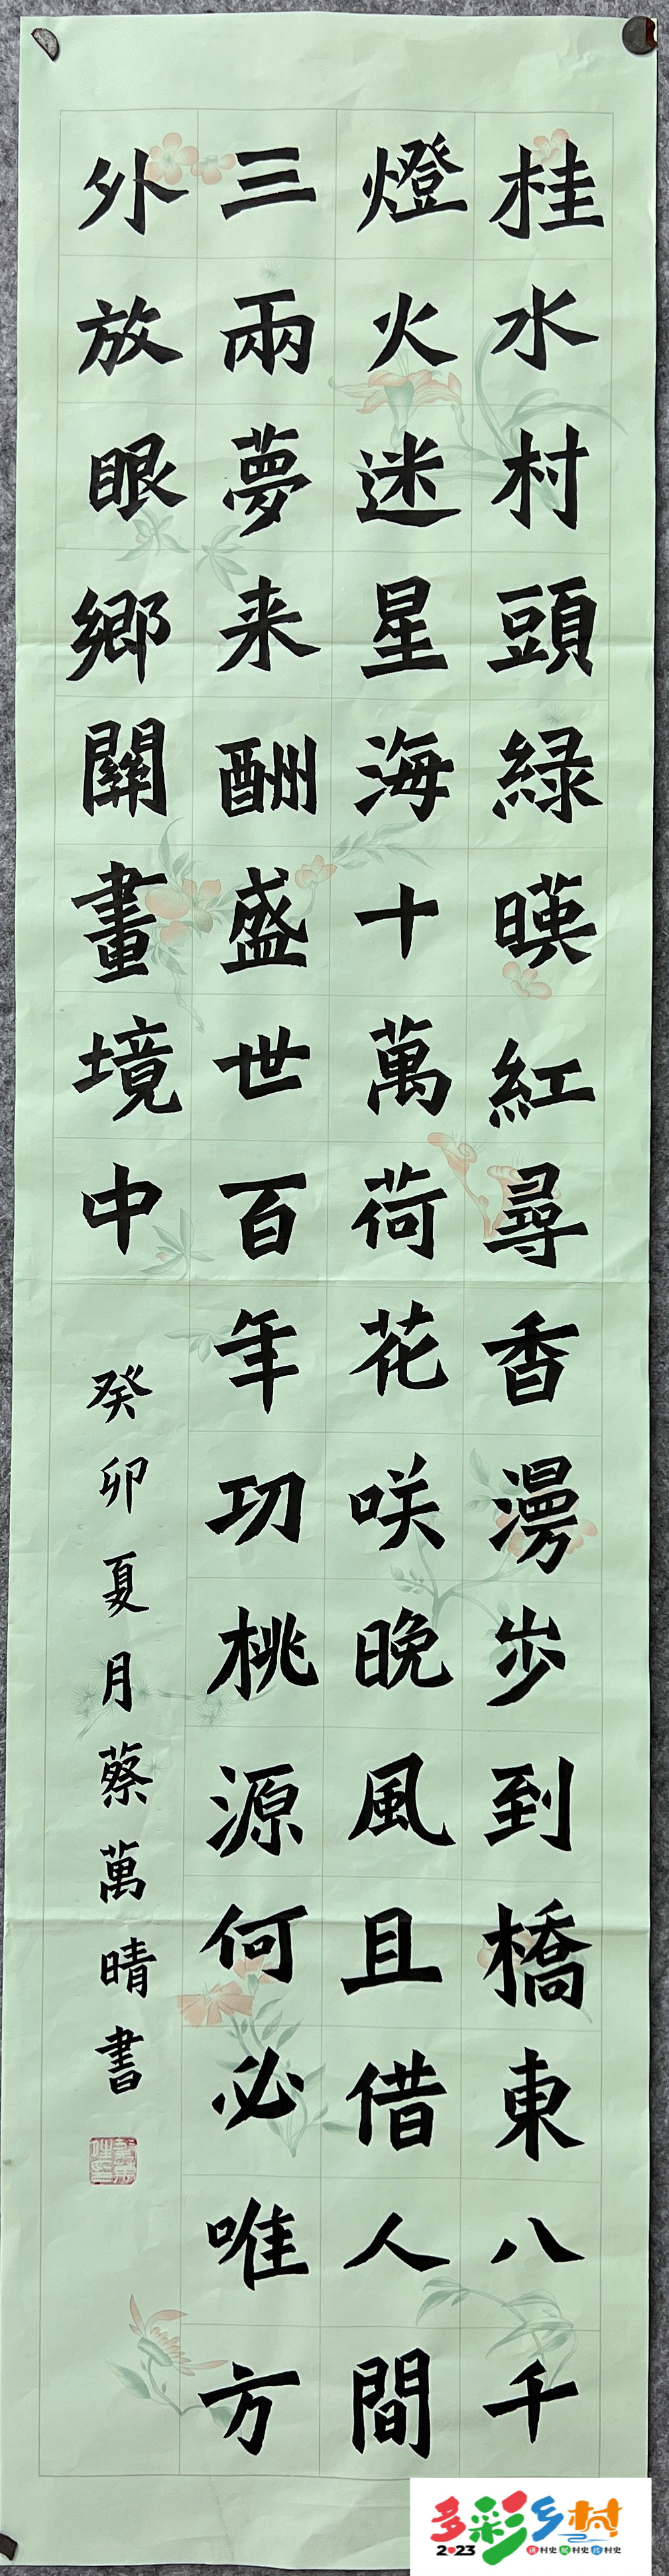 桂水村頭綠暎紅尋香漫步到橋東八千
燈火迷星海十萬荷花咲晚風且借人間
三兩夢来酬盛世百年功桃源何必唯方
外放眼鄉關畫境中
癸卯夏月蔡萬晴書
多彩乡村
2023 讲村史 赋村史 传村史